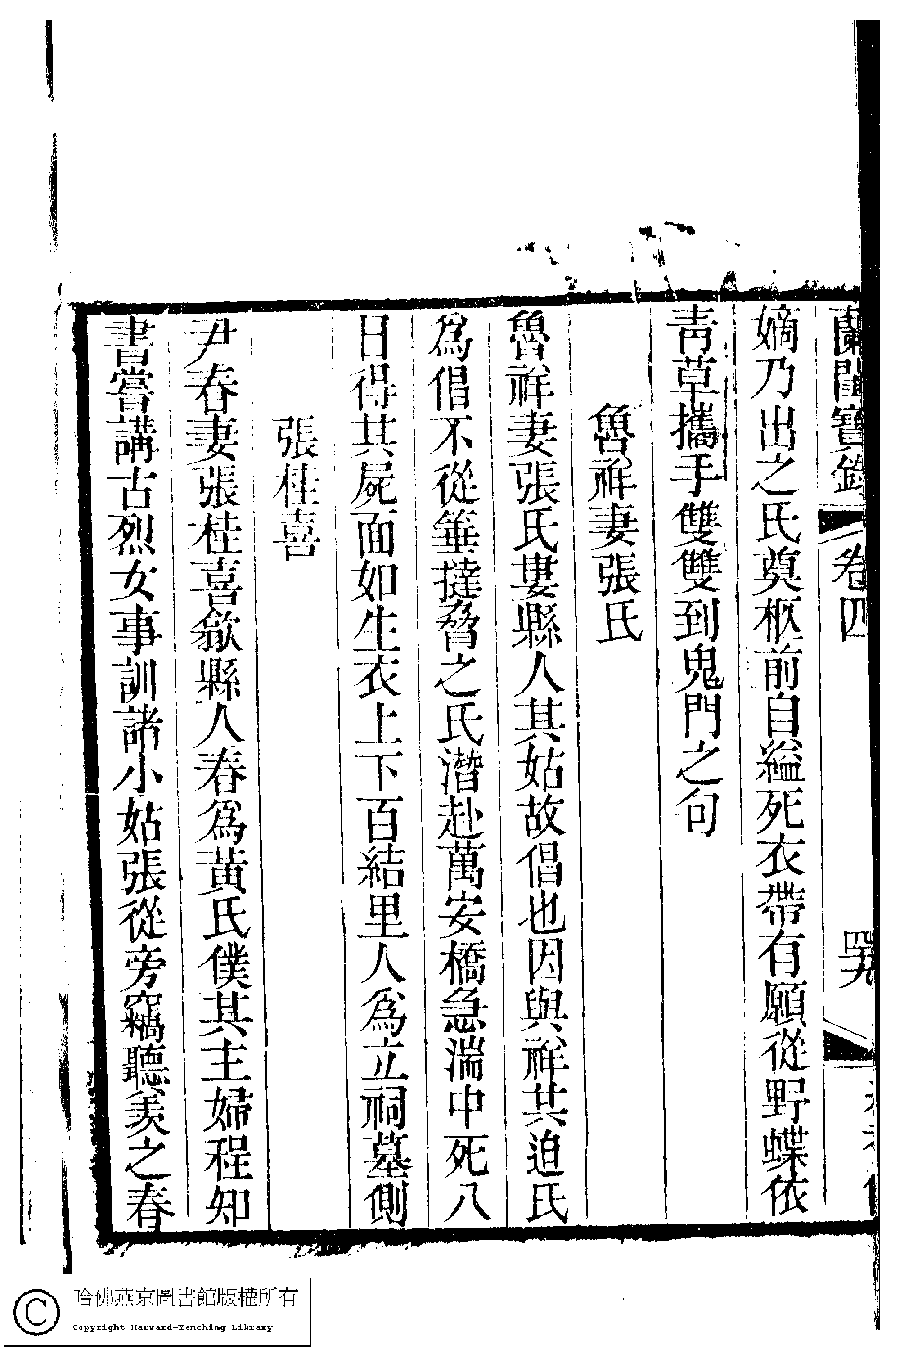 蘭閨寶錄 卷四 四九
嫡乃出之氏奠柩前自縊死衣帶有願從野蝶依
靑草攜手雙雙到鬼門之句
魯祥妻張氏
魯祥妻張氏婁縣人其姑故倡也因與祥共迫氏
爲倡不從箠撻脅之氏潛赴萬安橋急湍中死八
日得其屍面如生衣上下百結里人爲立祠墓側
張桂喜
尹春妻張桂喜歙縣人春爲黃氏僕其主婦程知
書嘗講古烈女事訓諸小姑張從旁竊聽羨之春
哈佛燕京圖書館版權所有
Copyright Harvard-Yenching Library